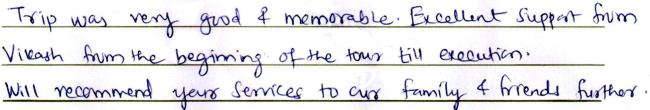 Trip was very good & memorable. Excellent support from
Vikash from the beginning of the tour till execution.
Will recommend your services to our family & friends further.